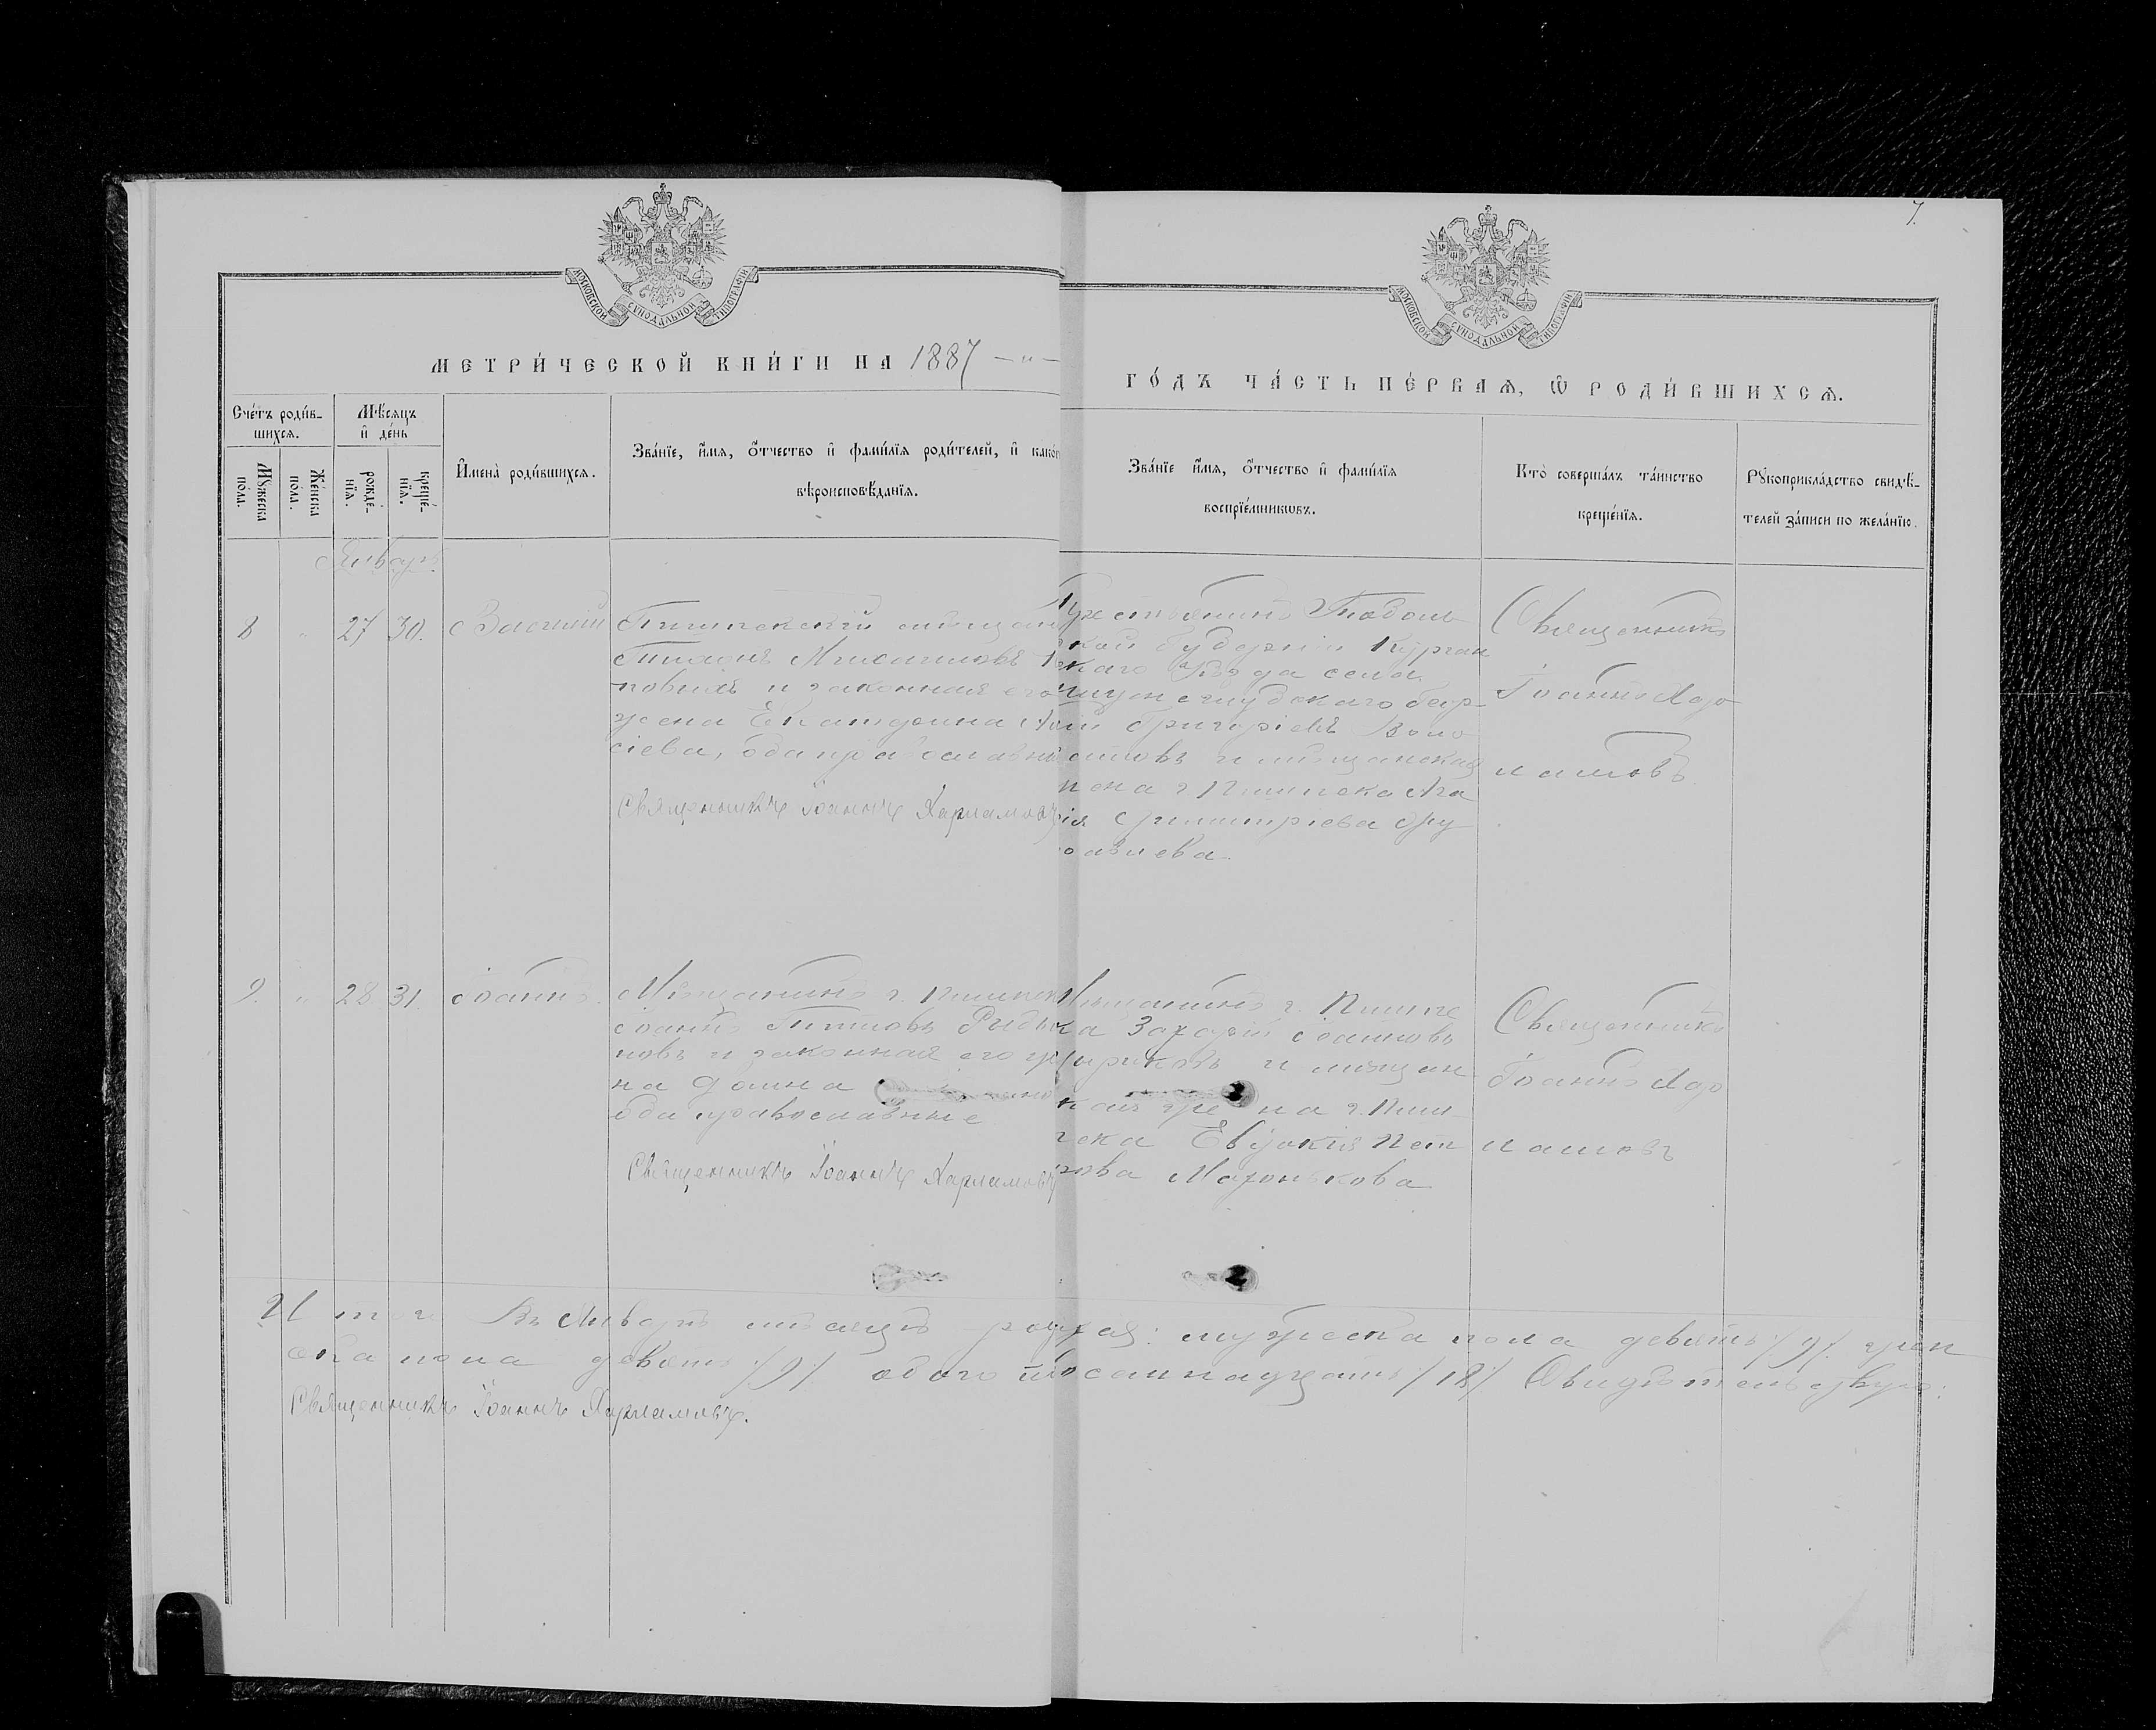 7.
МОСКОВСКОЙ СѴНОДАЛЬНОЙ ТИПОГРАФІИ
МОСКОВСКОЙ СѴНОДАЛЬНОЙ ТИПОГРАФІИ
МЕТРИ́ЧЕСКОЙ КНИ́ГИ НА 1887 — „ —
ГО́ДЪ ЧА́СТЬ ПЕ́РВАѦ, Ѽ РОДИ́ВШИХСѦ.
Сче́тъ роди́в-
шихсѧ.
Мѣ́сѧцъ
и҆ де́нь
Мꙋ́жеска
по́ла.
Же́нска
по́ла.
рожде́-
нїѧ.
креще́-
нїѧ.
И҆мена̀ роди́вшихсѧ.
Зва́нїе, и҆́мѧ, ѻ҆́тчество и҆ фами́лїѧ роди́телей, и҆ како́г
вѣроисповѣ́данїѧ.
Зва́нїе и҆́мѧ, ѻ҆́тчество и҆ фами́лїѧ
воспрїе́мникѡвъ.
Кто̀ соверша́лъ та́инство
креще́нїѧ.
Рꙋкоприкла́дство свидѣ́-
телей за́писи по жела́нїю.
Январь
8 „ 27 30. Василій
Пишпекскій мѣщан
Тихонъ Михаиловъ
повыхъ и законная его
жена Екатерина
сіева, оба православн
Священникъ Іоаннъ Харламовъ
Крестьянинъ Тоболь
ской губерніи Курган
скаго Уѣзда села
Григорьевъ
и мѣщанская
жена г. Пишпека Ма
рія Димитріева Жу
равлева.
Священникъ
Іоаннъ Хар
ламовъ
9. „ 28 31 Іоаннъ.
Мѣщанинъ г. Пишпек
Іоаннъ Титовъ
новъ и законная его же
на Домна
оба православные
Священникъ Іоаннъ Харламовъ
Мѣщанинъ г. Пишпе
ка Захарій Іоанновъ
и мѣщан
ская жена г. Пиш
пека Евдокія Пет
рова Махонькова
Священникъ
Іоаннъ Хар
ламовъ
Итого Въ Январѣ мѣсяцѣ родилось: мужеска пола девять /9/. жен
ска пола девять /9/. обоего восемнадцать /18/ Свидѣтельствую:
Священникъ Іоаннъ Харламовъ.